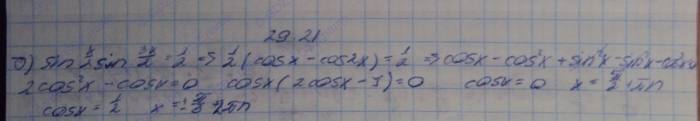 29.21
б) sin x/2 sin 3x/2 = 1/2 => 1/2 (cosx - cos2x) = 1/2 => cosx - cos²x + sin²x - sin²x - cos²x=0
2cos²x - cosx = 0 cosx (2cosx - 1) = 0 cosx = 0 x = π/2 + πn
cosx = 1/2 x = ± π/3 2πn